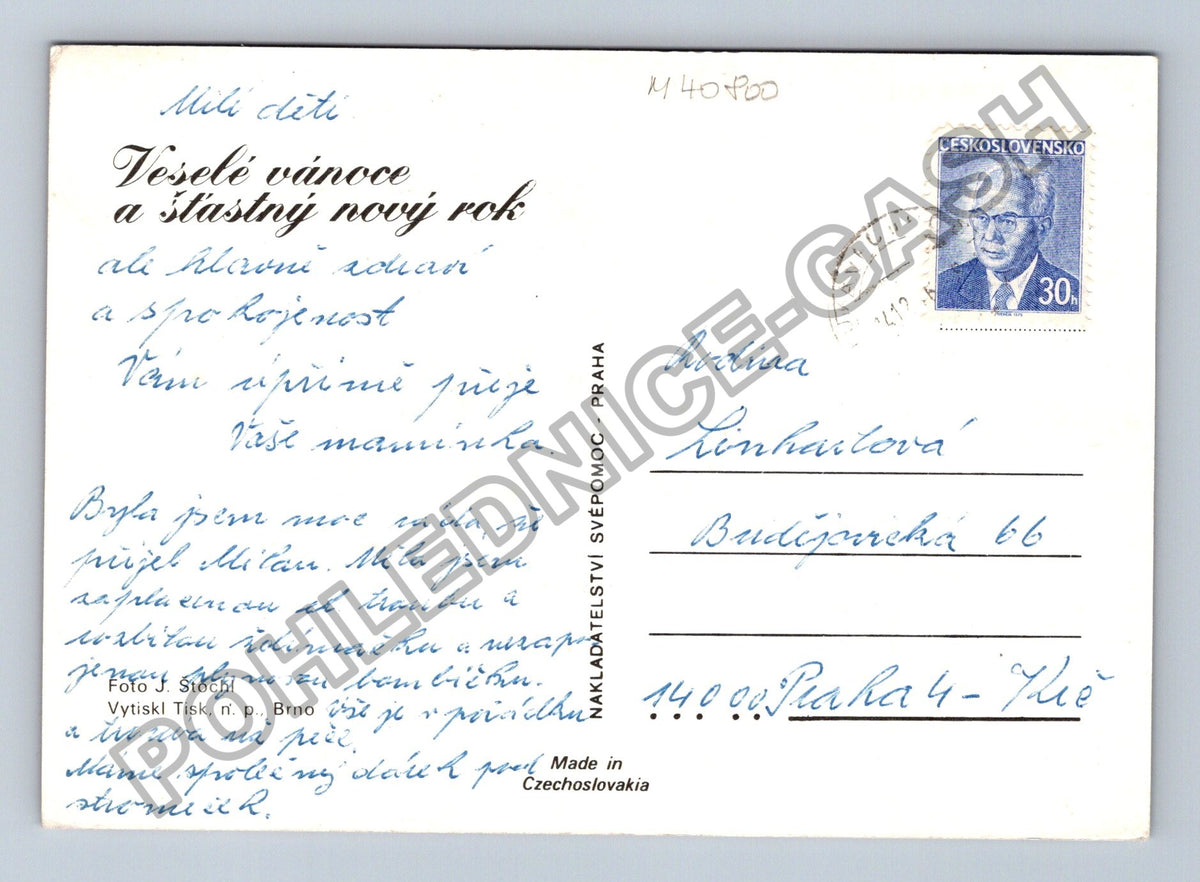 M 40 800
Milí děti
Veselé vánoce
a šťastný nový rok
ale hlavně zdraví
a spokojenost
Vám upřímě přeje
Vaše maminka.
Byla jsem moc ráda že
přijel Milan. Měla jsem
zaplacenou el troubu a
rozbitou ždímačku a nezapo
jenou plynovou bombičku.
Vše je v pořádku
a trouba na peče.
Máme společný dárek pod
stromeček.
Foto J. Štochl
Vytiskl Tisk, n. p., Brno
NAKLADATELSTVÍ SVÉPOMOC - PRAHA
Made in
Czechoslovakia
ČESKOSLOVENSKO
30h
Rodina
Linhartová
Budějovická 66
14000 Praha 4 - Krč
POHLEDNICE-GASH